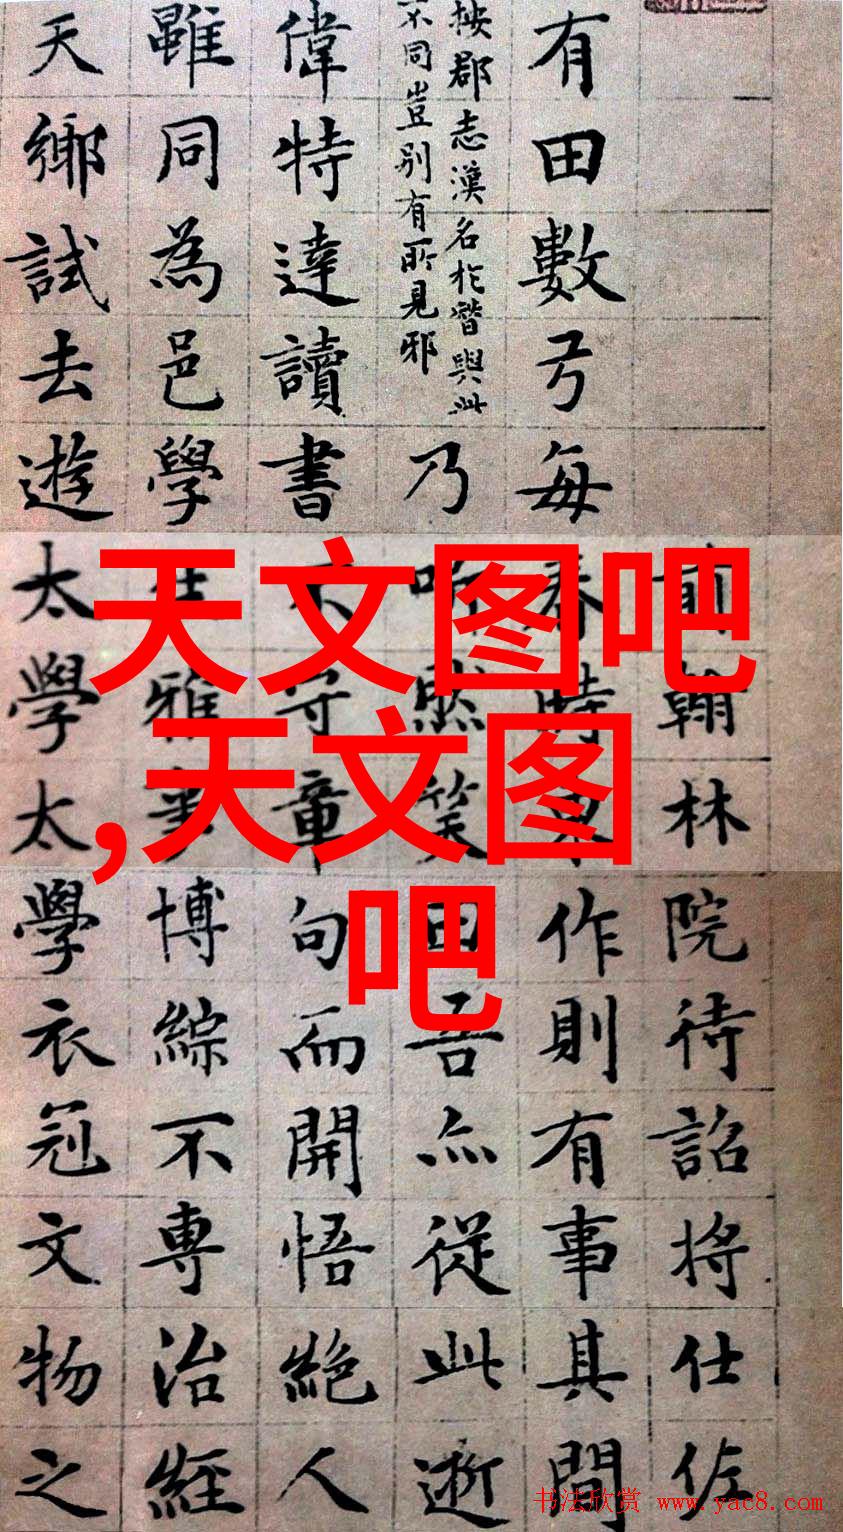 天文图吧
,天文图
吧
前翰林院待詔将仕佐
有田數弓每春時東作則有事其間
按郡志漢名於與此
不同豈别有所見邪
乃听然笑曰吾亦從此逝
偉特達讀書不守章句而開悟絶人
雖同為邑學雅博綜不専治經
天鄉試去遊太學太學衣冠文物之
书法欣赏 www.yac8.com